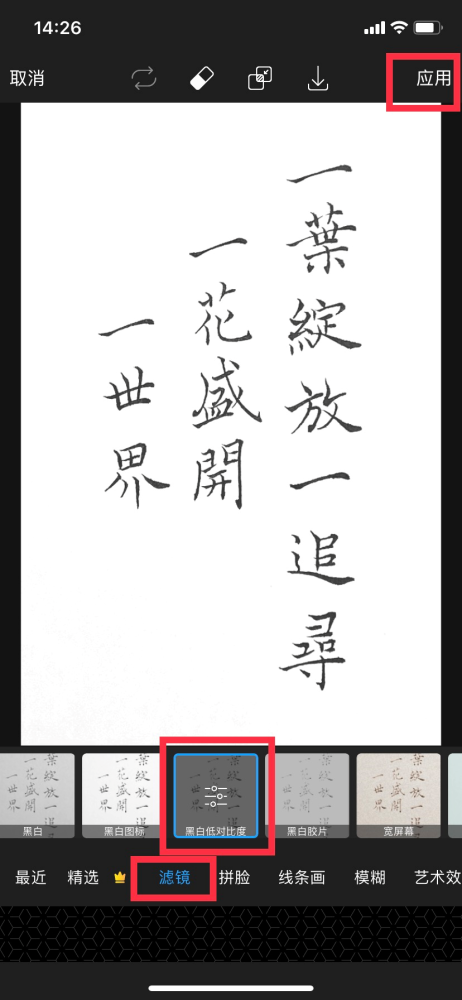 14:26
取消
应用
一葉綻放一追尋
一花盛開
一世界
黑白
黑白图标
黑白低对比度
黑白胶片
宽屏幕
最近
精选
滤镜
拼脸
线条画
模糊
艺术效